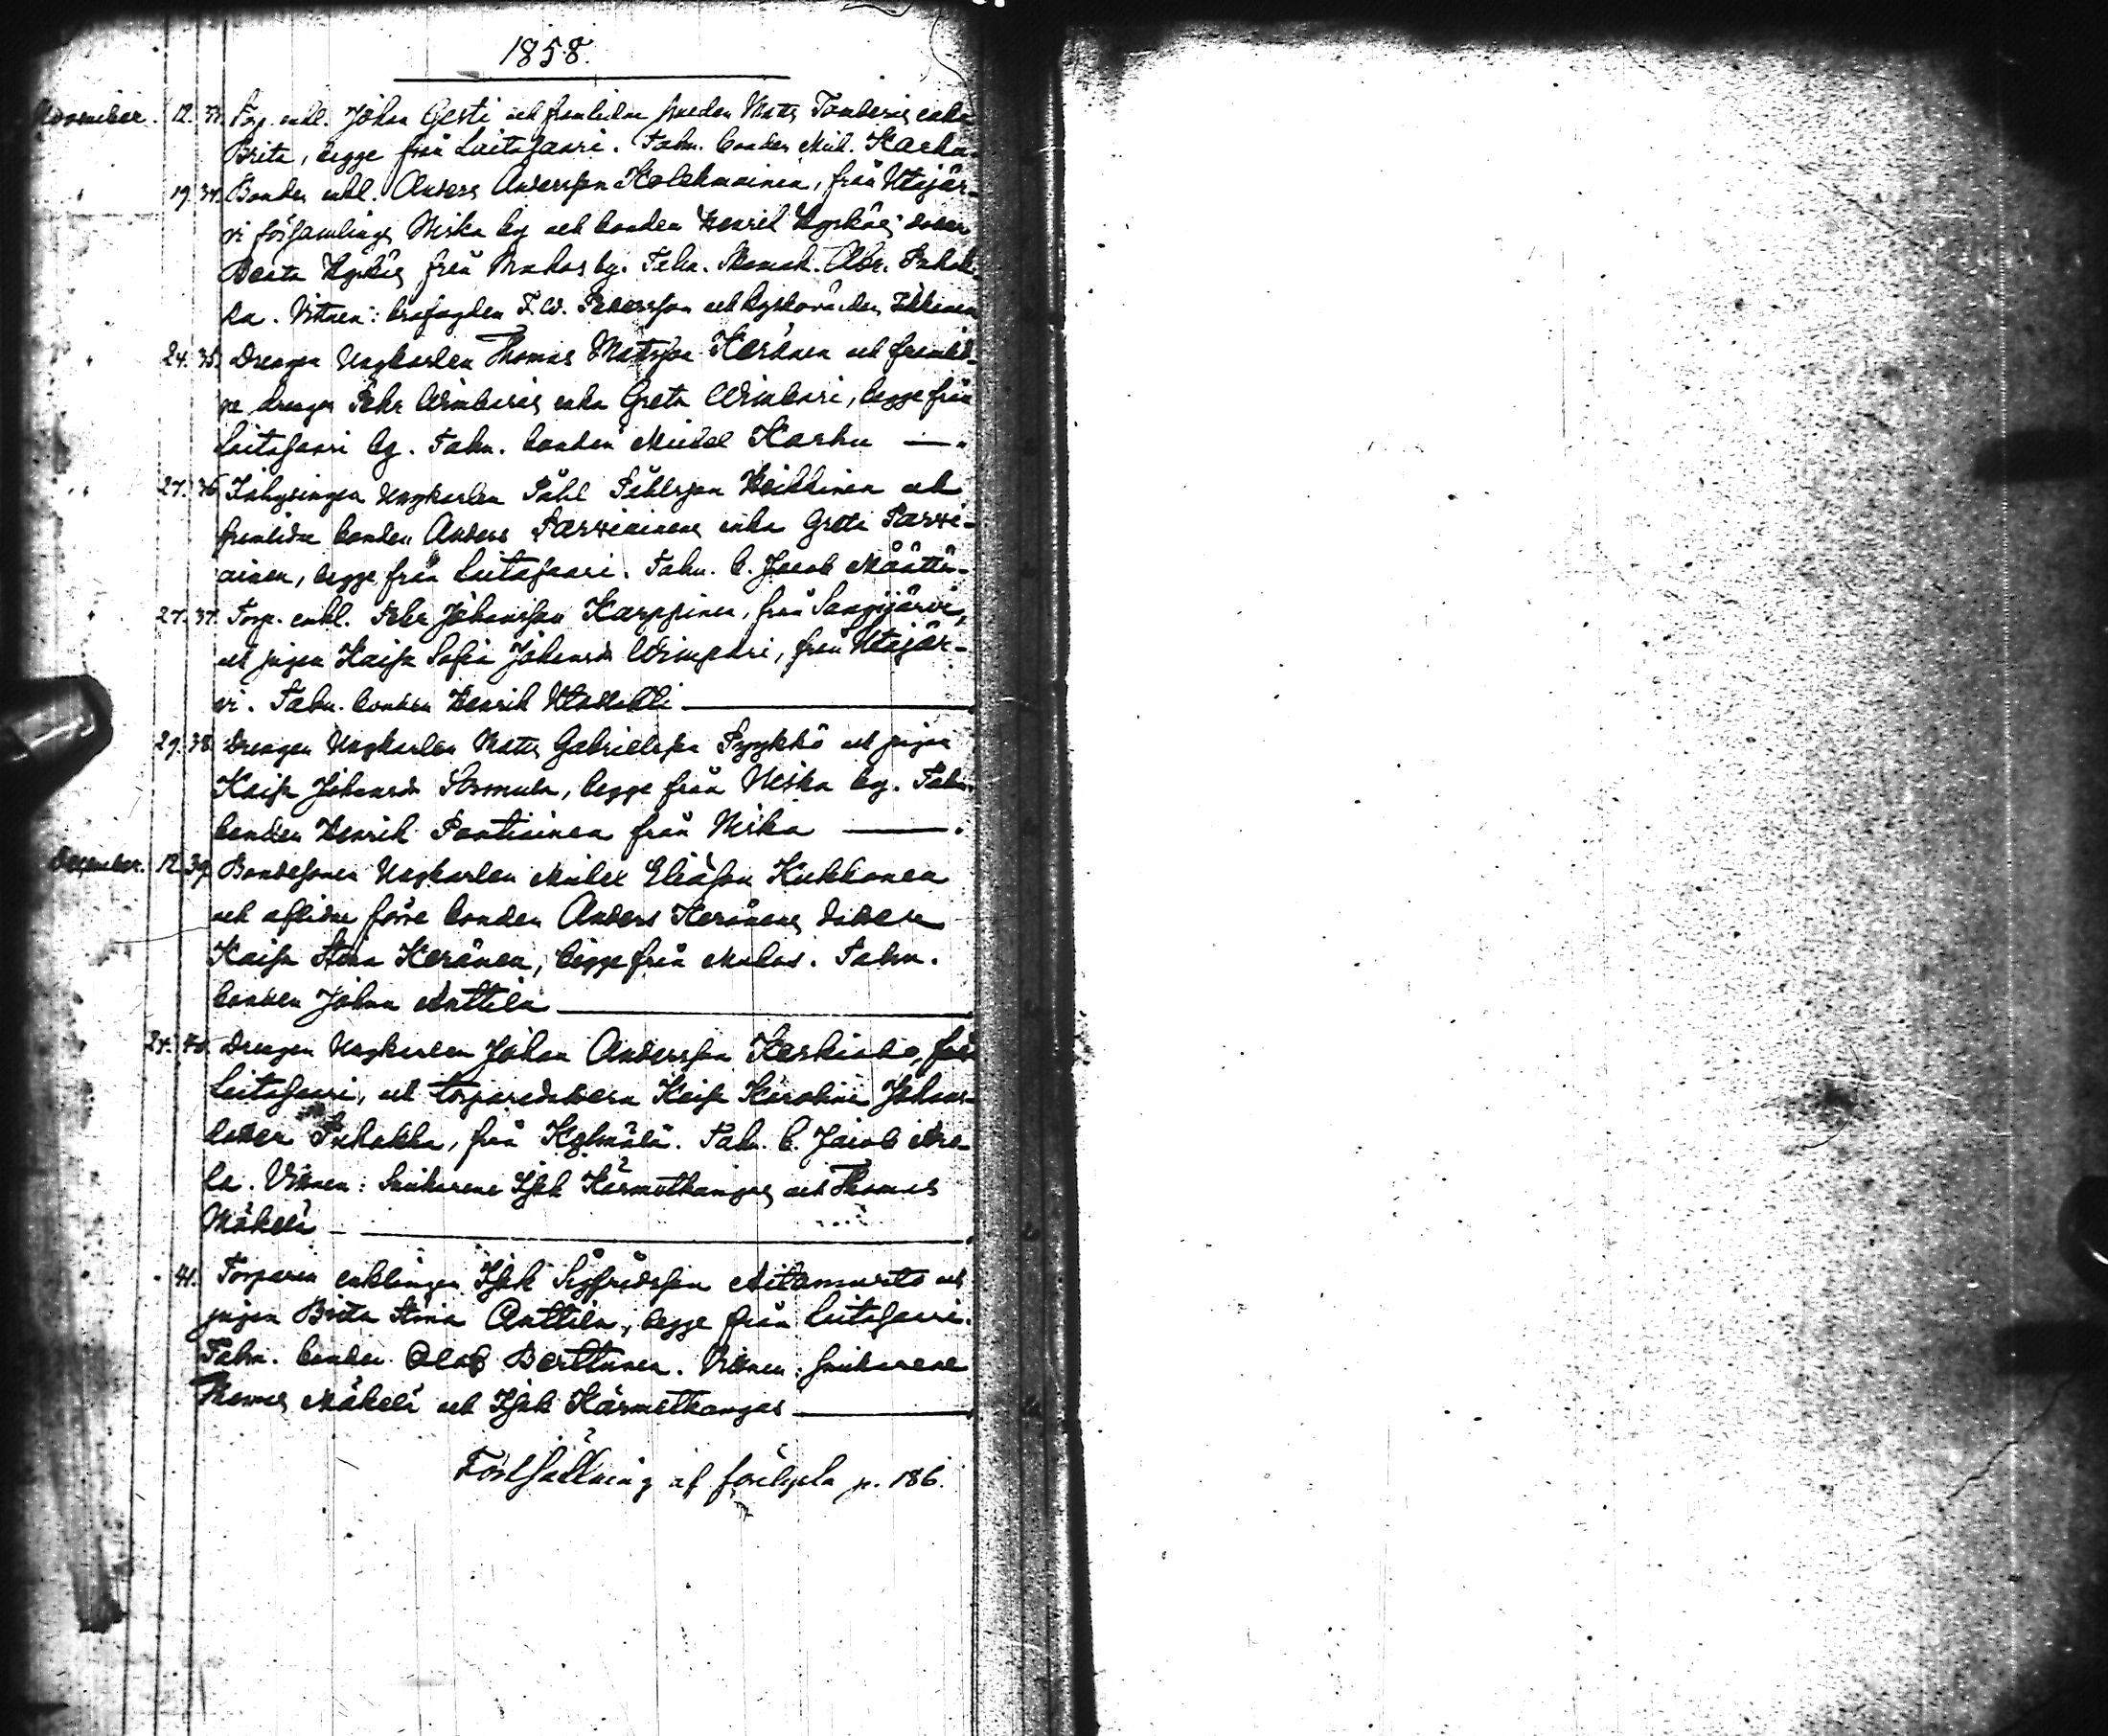 1858.
November. 12. 33. Torp. enkl. Johan Gesti och framlidne smeden Matts Tauberis enka
Brita, begge från Laitasaari. Talm. bonden Mich. Karhu.
19. 34. Bonden enkl. Anders Andersson Kolehmainen, från Utajär-
vi församlings Niska by och bonden Henrik Hyrkäs doter
Beata Hyrkäs från Muhos by. Talm. Abr. Puhak-
ka. Vittnen: T. W. Petersson och
24. 35. Drengen Ungkarlen Thomas Matsson Keränen och framlid-
ne drengen Pehr Wimbaris enka Greta Wimbari, begge från
Laitasaari by. Talm. bonden Michel Karhu
27. 36. Inhysingen Ungkarlen Påhl Påhlsson Heikkinen och
framlidne bonden Anders Parviainens enka Greta Parvi-
ainen, begge från Laitasaari. Talm. b. Jacob Määttä.
27. 37. Torp. enkl. Pehr Johansson Karppinen, från Sangijärvi,
och pigan Kaisa Sofia Johansd. Wimpari, från Utajär-
vi. Talm. bonden Henrik
29. 38. Drengen Ungkarlen Matts Gabrielsson Pyykkö och pigan
Kaisa Johansd. Sormula, begge från Niska by. Talm.
bonden Henrik Pantiainen från Niska
December. 12. 39. Bondesonen Ungkarlen Michel Eliasson Kukkonen
och aflidne förre bonden Anders Keränens doter
Kaisa Stina Keränen, begge från Muhos. Talm.
bonden Johan Anttila
24. 40. Drengen Ungkarlen Johan Andersson Keskiaho, från
Laitasaari, och torparedotern Kaisa Karolina Johans-
doter Puhakka, från Kylmälä. Talm. b. Jacob Are-
la. Vittnen: Snikarene Isak Kärmetkangas och Thomas
Mäkelä
41. Torparen enklingen Isak Sigfridsson Aitamurto och
pigan Brita Stina Anttila, begge från Laitasaari.
Talm. bonden Olof Berttunen. Vittnen: snikarene
Thomas Mäkelä och Isak Kärmetkangas
Fortsättning af förelysta p. 186.